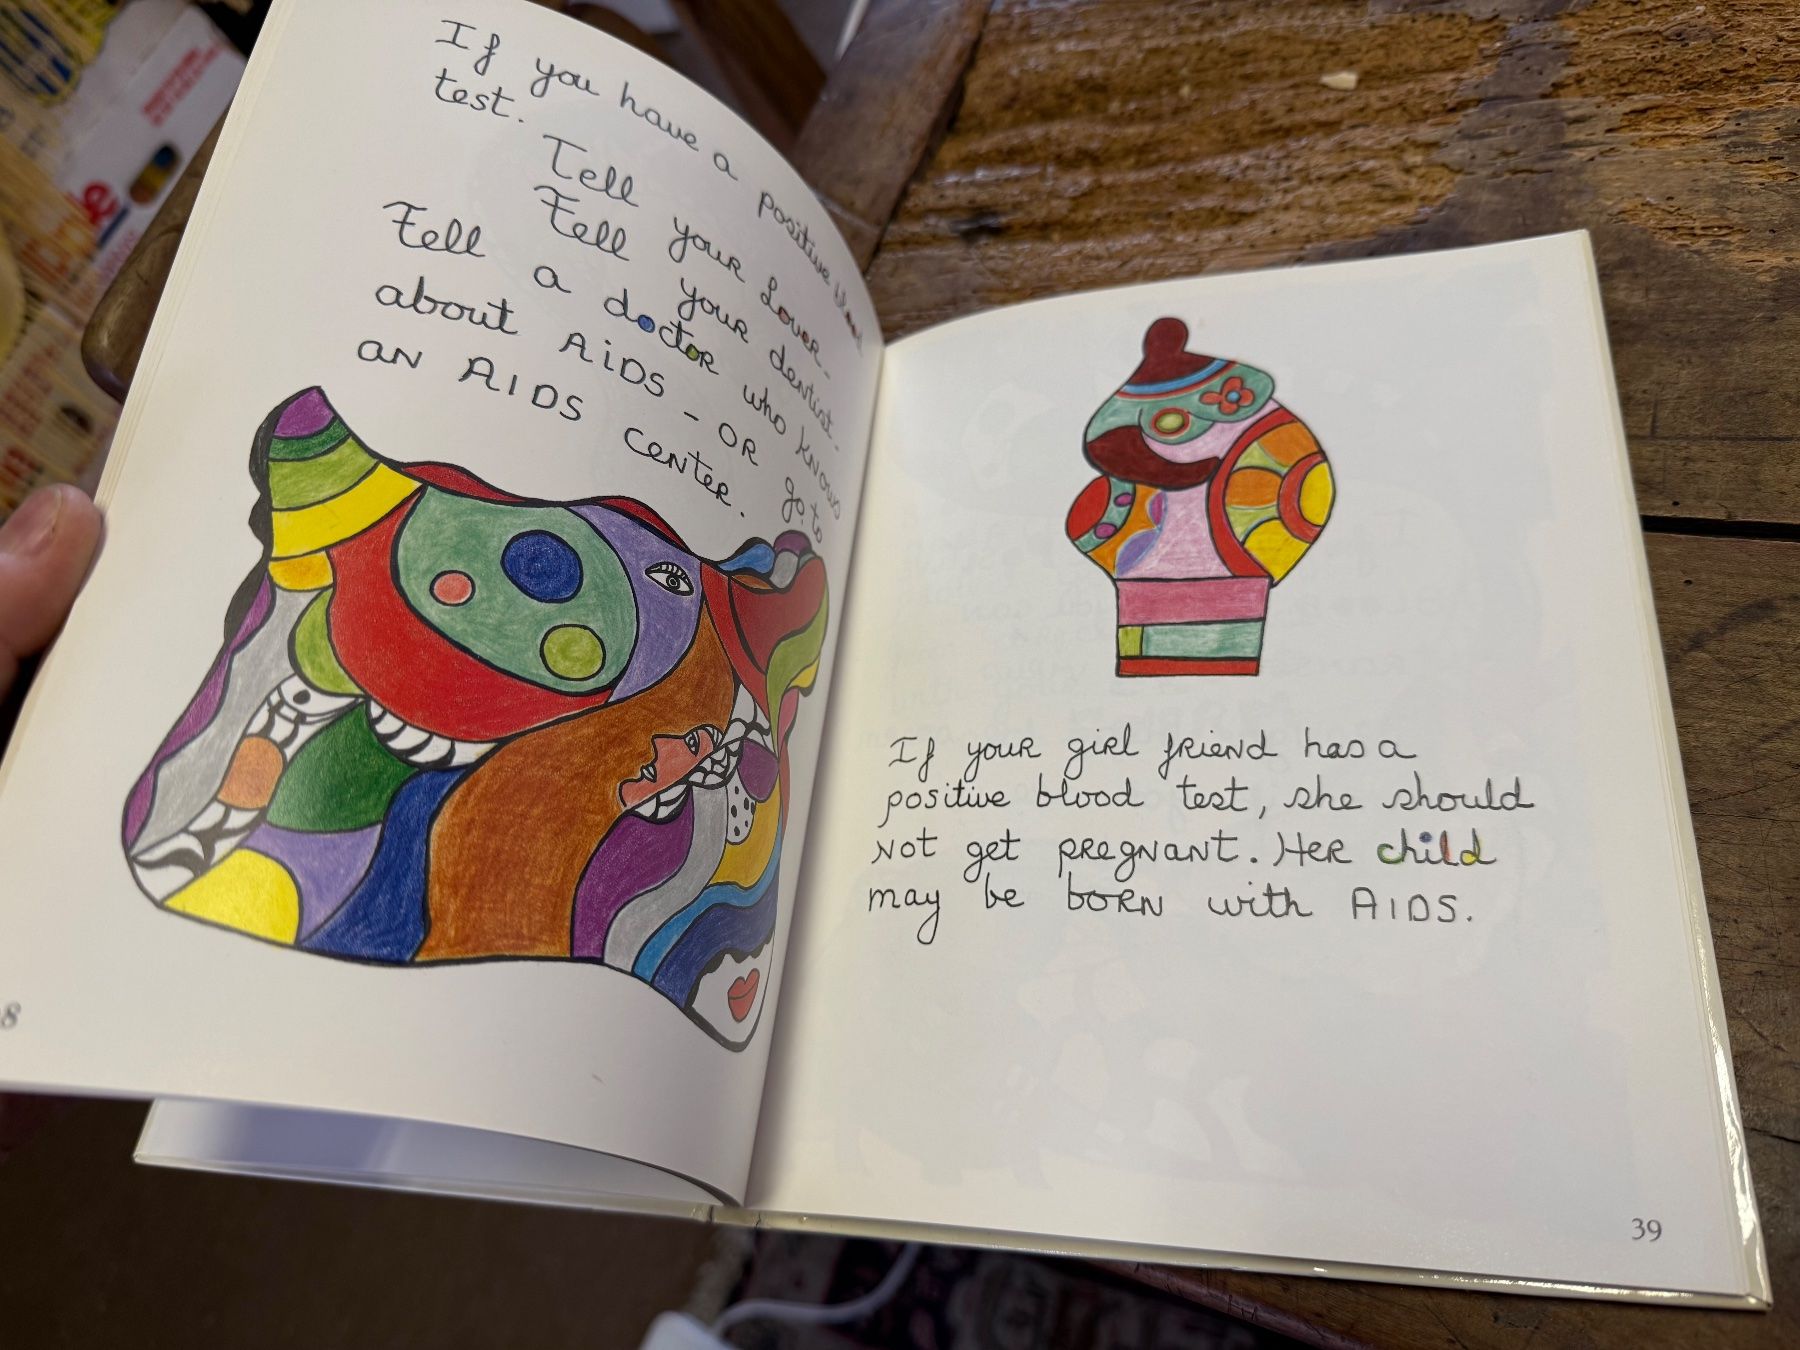 If you have a positive blood
test.
Tell your Lover.
Tell your dentist.
Tell a doctor who knows
about AiDS - OR go to
an AIDS center.
8
If your girl friend has a
positive blood test, she should
not get pregnant. Her child
may be born with AIDS.
39